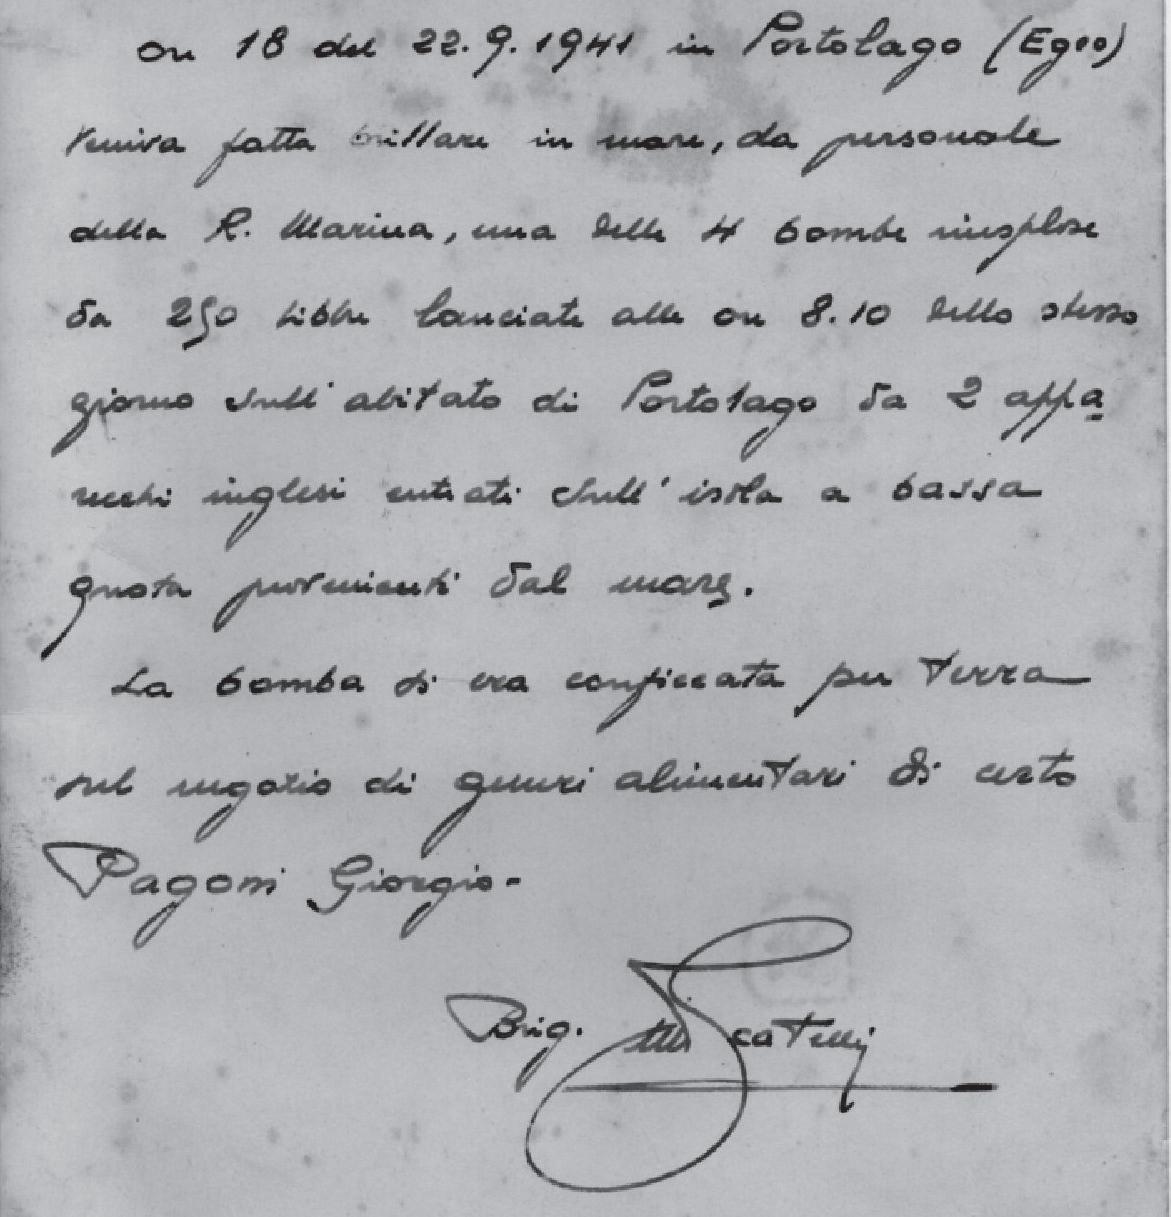 ore 18 del 22.9.1941 in Portolago (Egeo)
veniva fatta brillare in mare, da personale
della R. Marina, una delle 4 bombe inesplose
da 250 libbre lanciate alle ore 8.10 dello stesso
giorno sull'abitato di Portolago da 2 appa
recchi inglesi entrati sull'isola a bassa
quota provenienti dal mare.
La bomba si era conficcata per terra
sul negozio di generi alimentari di certo
Pagoni Giorgio-
Brig.